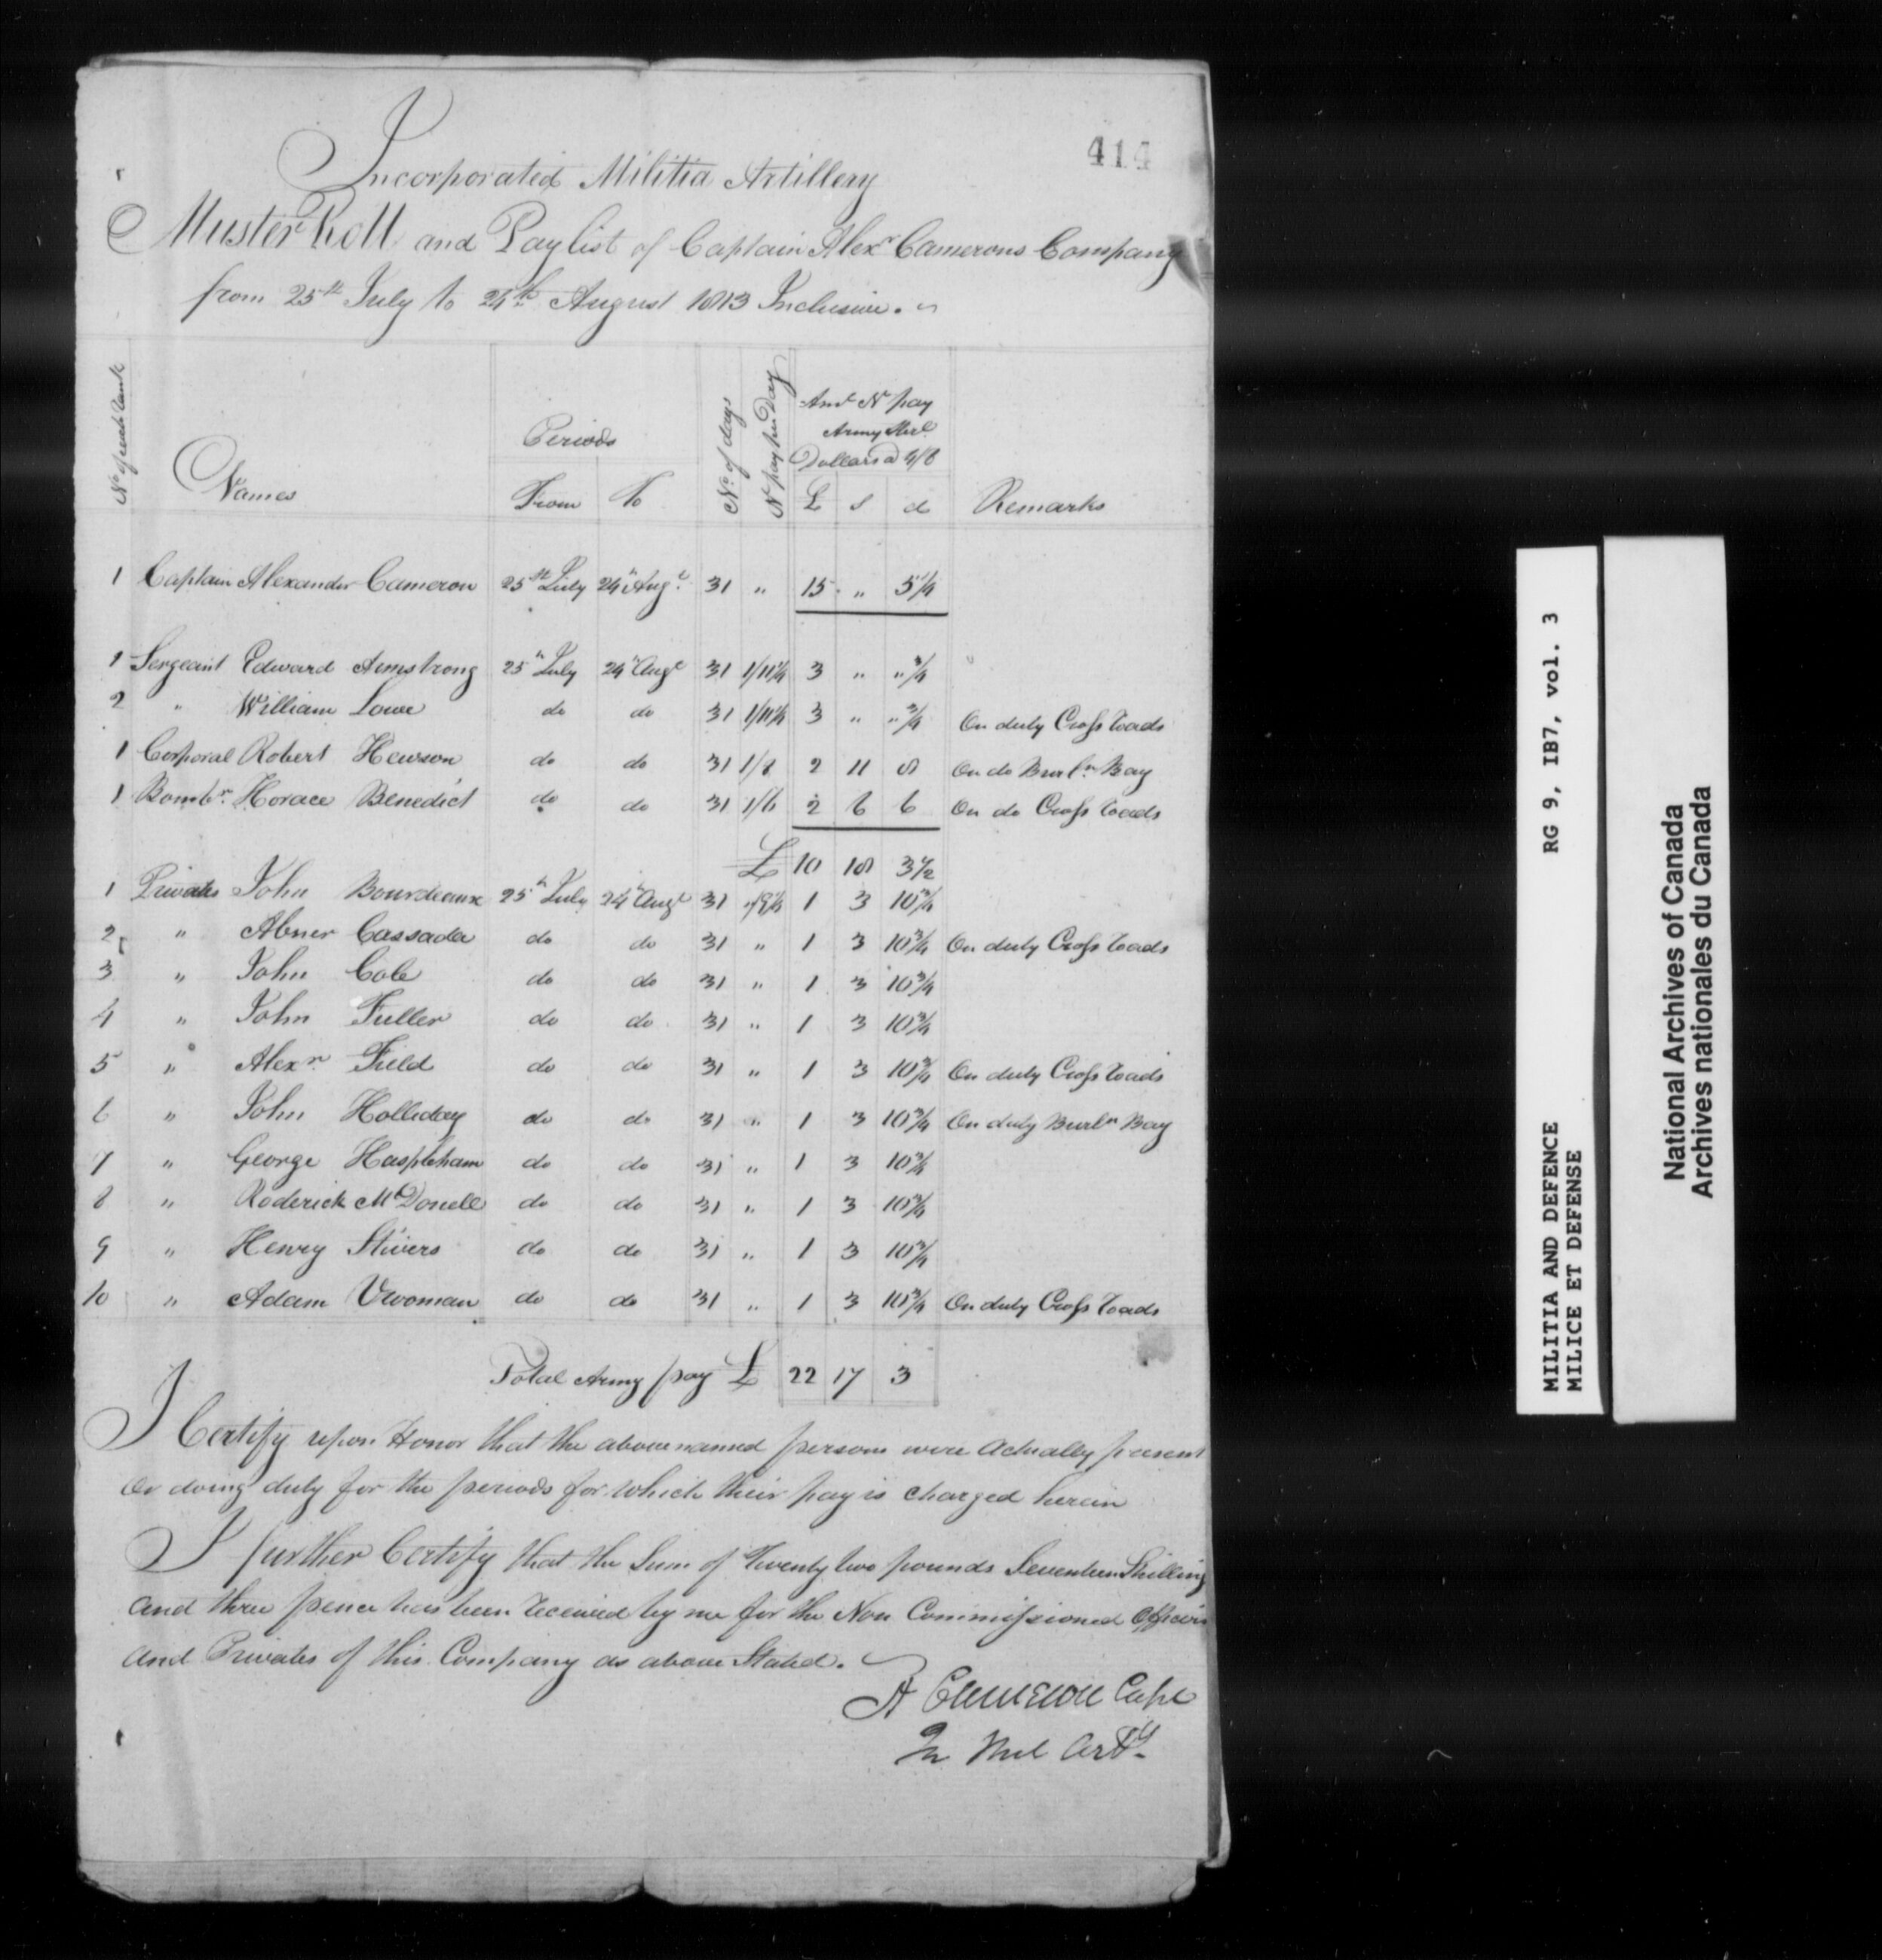 414
Incorporated Militia Artillery
Muster Roll and Paylist of Captain Alexr Camerons Company
from 25th July to 24th August 1813 Inclusive.
No of each Rank Names Periods From To No of days Nt pay per Day Amt Nt pay Army Sterl. Dollars a 4/8 £ s d Remarks
1 Captain Alexander Cameron 25th July 24th Augt 31 " 15 " 5 1/4
1 Sergeant Edward Armstrong 25th July 24th Augt 31 1/11 1/4 3 " " 3/4
2 " William Lowe do do 31 1/11 1/4 3 " " 3/4 On duty Cross roads
1 Corporal Robert Hewson do do 31 1/8 2 11 8 On do Burln Bay
1 Bombr. Horace Benedict do do 31 1/6 2 6 6 On do Cross roads
£ 10 18 3 1/2
1 Privates John Bourdeaux 25th July 24th Augt 31 "/9 1/4 1 3 10 3/4
2 " Abner Cassada do do 31 " 1 3 10 3/4 On duty Cross roads
3 " John Cole do do 31 " 1 3 10 3/4
4 " John Fuller do do 31 " 1 3 10 3/4
5 " Alexr. Field do do 31 " 1 3 10 3/4 On duty Cross roads
6 " John Holliday do do 31 " 1 3 10 3/4 On duty Burln Bay
7 " George Haspleham do do 31 " 1 3 10 3/4
8 " Roderick McDonell do do 31 " 1 3 10 3/4
9 " Henry Stivers do do 31 " 1 3 10 3/4
10 " Adam Vrooman do do 31 " 1 3 10 3/4 On duty Cross roads
Total Army pay £ 22 17 3
I Certify upon Honor that the above named persons were actually present
or doing duty for the periods for which their pay is charged herein
I further Certify that the Sum of Twenty two pounds Seventeen Shilling
and three pence has been received by me for the Non Commissioned Officers
and Privates of this Company as above Stated.
A Cameron Capt
In Mil Arty.
MILITIA AND DEFENCE RG 9, IB7, vol. 3
MILICE ET DEFENSE
National Archives of Canada
Archives nationales du Canada